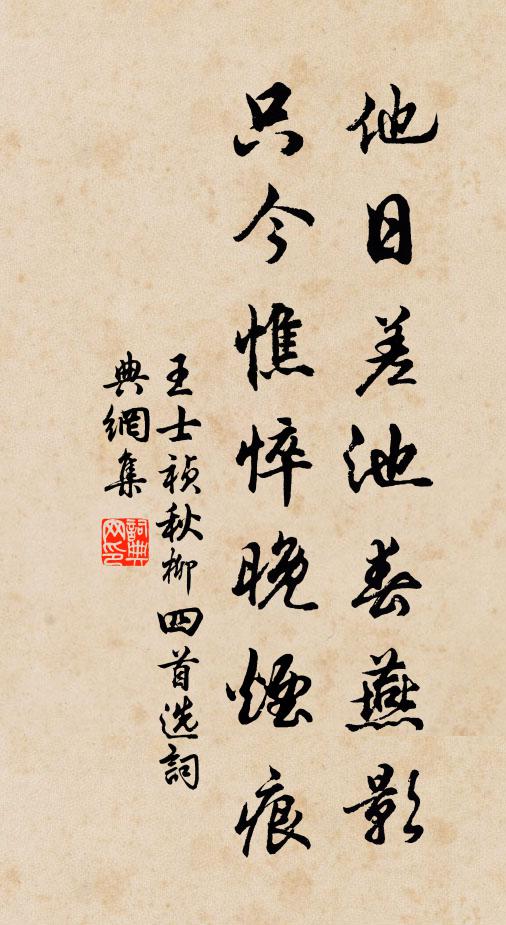 他日差池春燕影
只今憔悴晚煙痕
王士禎秋柳四首选詞
典網集
詞典網印